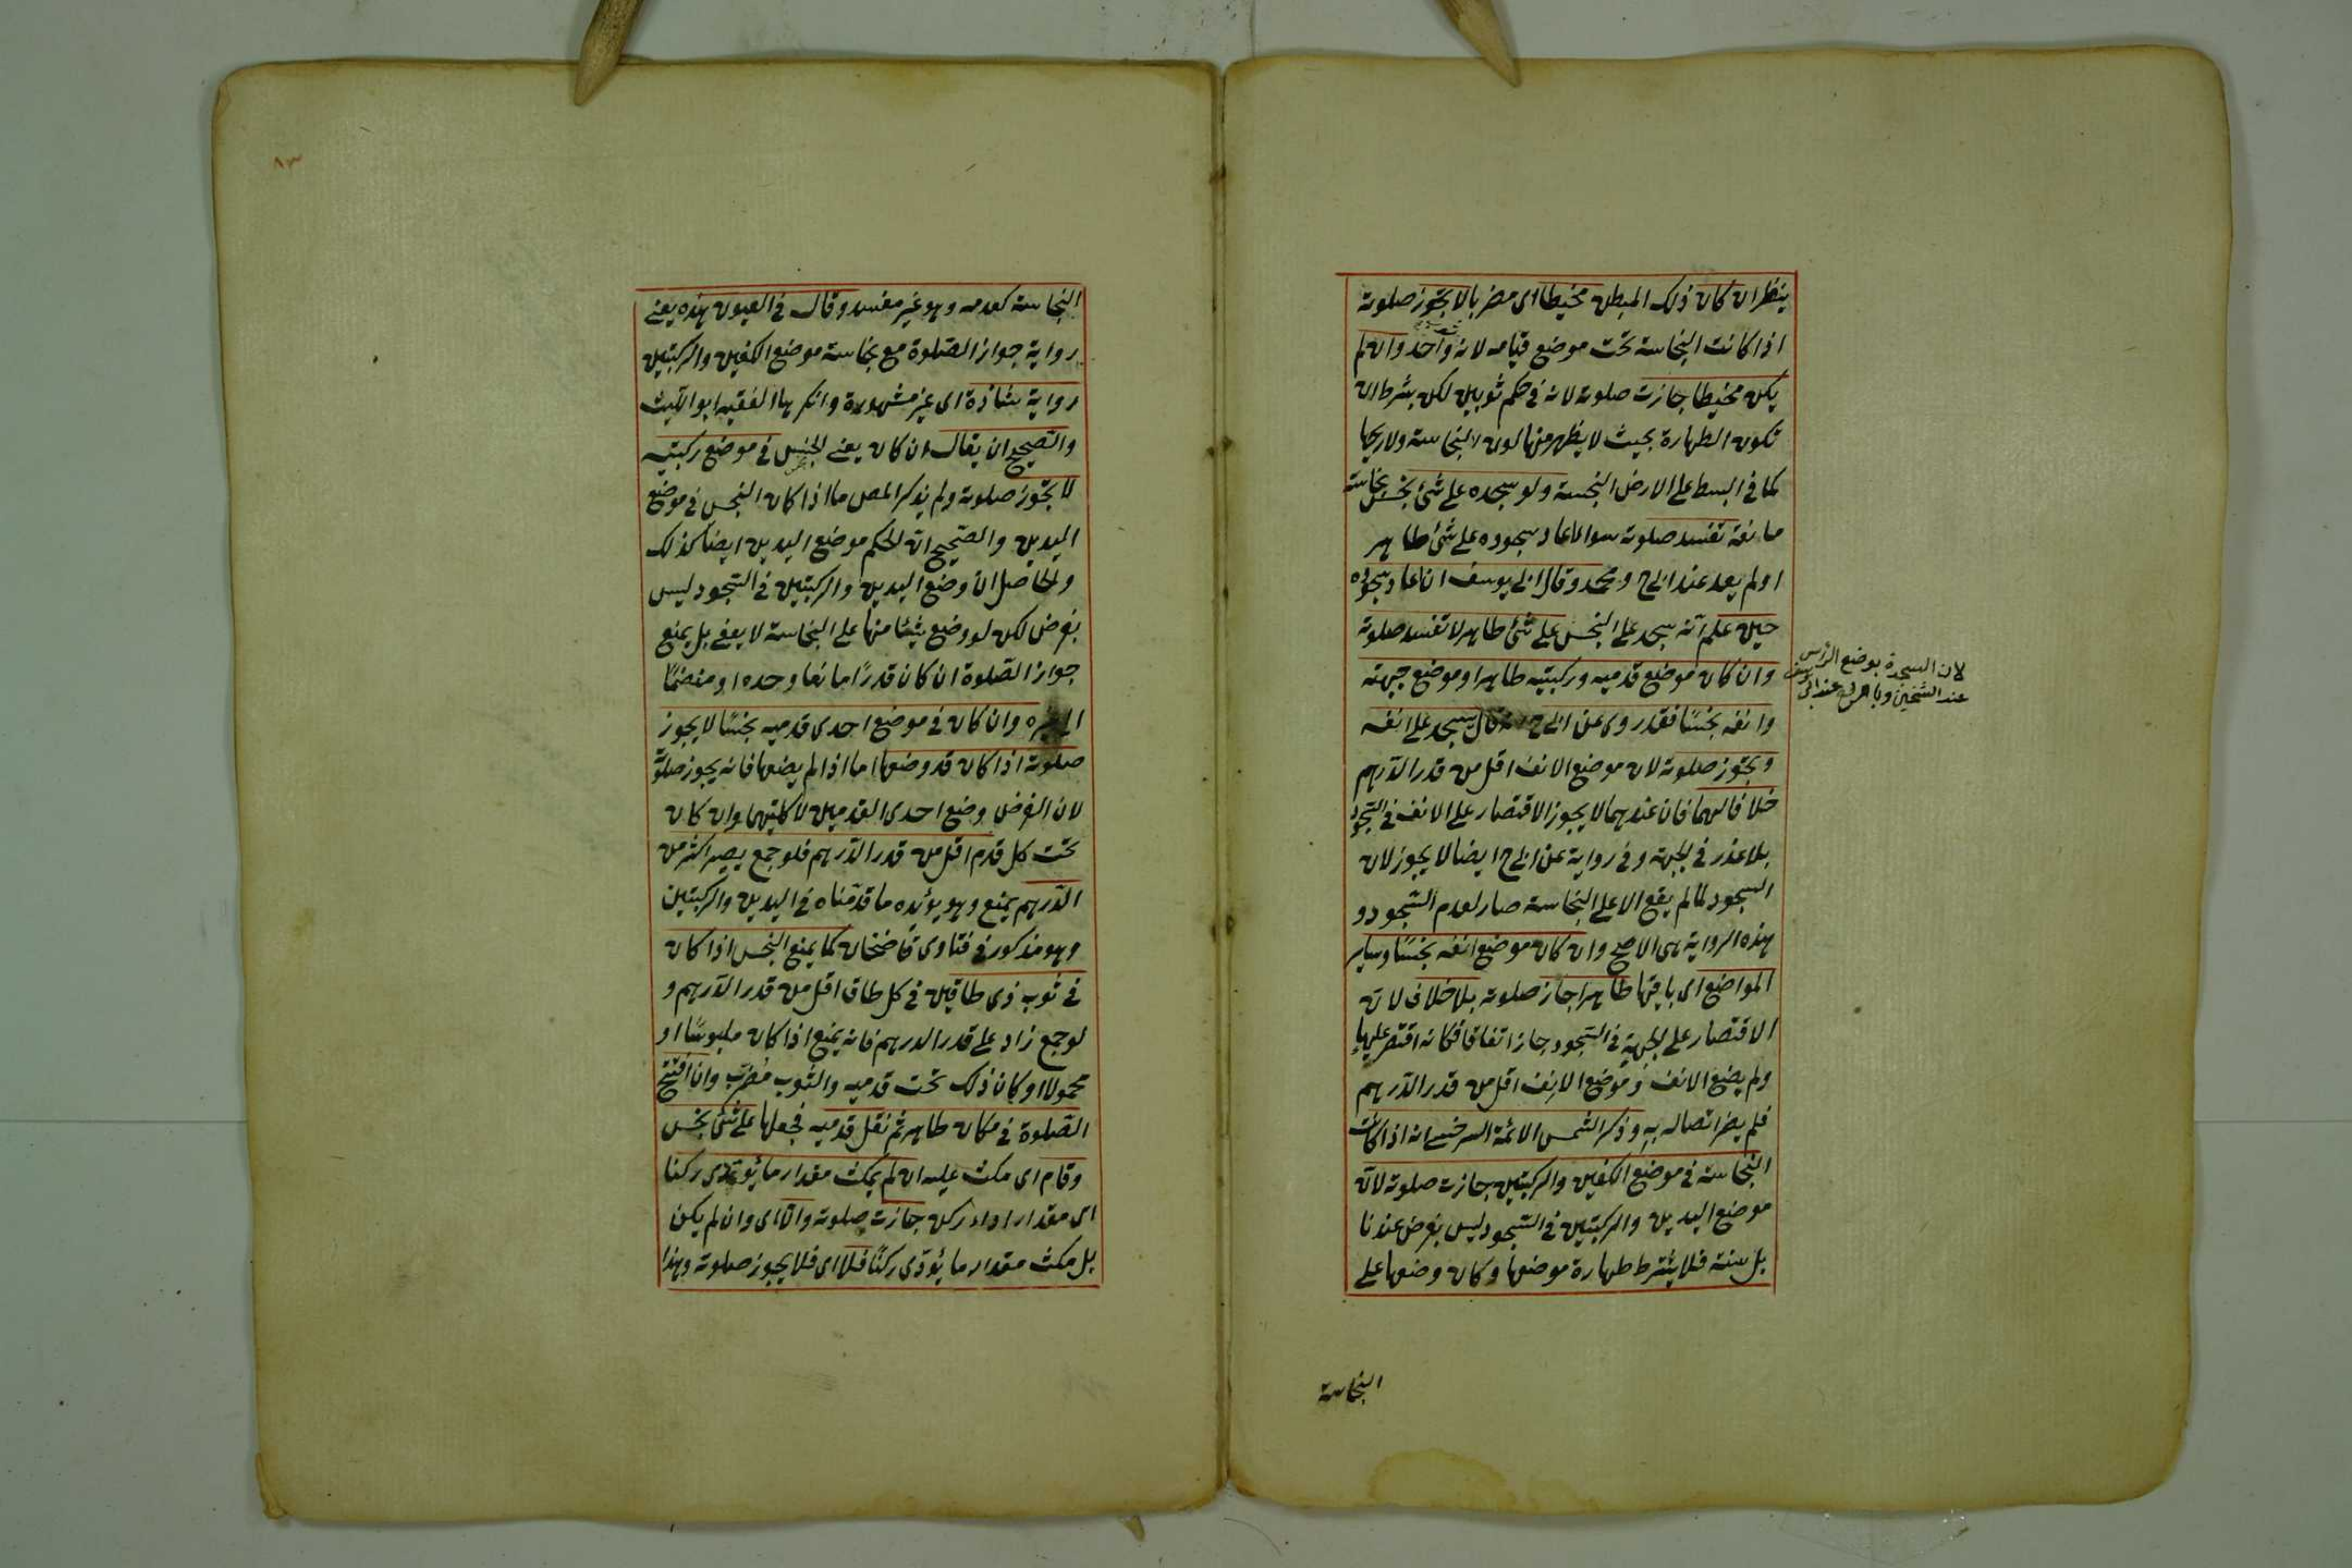 ينظر ان كان ذلك المبطن مخيطا اى مضربا لا يجوز صلوته
اذا كانت النجاسة تحت موضع قيامه لانه واحد وان لم
يكن مخيطا جازت صلوته لانه فى حكم ثوبين لكن بشرط ان
تكون الطهارة بحيث لا يظهر منها لون النجاسة ولا ريحها
كما فى البسط على الارض النجسة ولو سجده على شئ نجس نجاسة
مانعة تفسد صلوته سوا اعاد سجوده على شئ طاهر
او لم يعد عند ابى ح ومحمد وقال ابى يوسف ان اعاد سجوده
حين علم انه سجد على النجس على شئ طاهر لا تفسد صلوته
وان كان موضع قدميه وركبتيه طاهرا وموضع جبهته
وانفه نجسًا فقد روى عن ابى ح قال سجد على انفه
ويجوز صلوته لان موضع الانف اقل من قدر الدرهم
خلافا لهما فان عندهما لا يجوز الاقتصار على الانف فى السجود
بلا عذر فى الجبهة وفى رواية عن ابى ح ايضا لا يجوز لان
السجود لما لم يقع الا على النجاسة صار لعدم السجود و
هذه الرواية هى الاصح وان كان موضع انفه نجسًا وساير
المواضع اى باقيها طاهرا جاز صلوته بلا خلاف لان
الاقتصار على الجبهة فى السجود جاز اتفاقا فكانه اقتصر عليها
ولم يضع الانف وموضع الانف اقل من قدر الدرهم
فلم يضر اتصاله به وذكر الشمس الائمة السرخسى انه اذا كانت
النجاسة فى موضع الكفين والركبتين جازت صلوته لان
موضع اليدين والركبتين فى السجود ليس بفرض عندنا
بل سنة فلا يشترط طهارة موضعها وكان وضعها على
لان السجدة بوضع الرأس
عند الشيخين عند ابى يوسف
النجاسة
٨٣
النجاسة كعدمه وهو غير مفسد وقال فى العيون هذه يعنى
رواية جواز الصلوة مع نجاسة موضع الكفين والركبتين
رواية شاذة اى غير مشهورة وانكرها الفقيه ابو الليث
والصحيح ان يقال ان كان يعنى النجس فى موضع ركبتيه
لا يجوز صلوته ولم يذكر المص ما اذا كان النجس فى موضع
اليدين والصحيح ان الحكم موضع اليدين ايضا كذلك
والحاصل ان وضع اليدين والركبتين فى السجود ليس
بفرض لكن لو وضع شيئا منها على النجاسة لا يعفى بل يمنع
جواز الصلوة ان كان قدرًا مانعا وحده او منضمًا
الى غيره وان كان فى موضع احدى قدميه نجسًا لا يجوز
صلوته اذا كان قد وضعها اما اذا لم يضعها فانه يجوز صلوته
لان الفرض وضع احدى القدمين لا كليتهما وان كان
تحت كل قدم اقل من قدر الدرهم فلو جمع يصير اكثر من
الدرهم يمنع وهو يؤيده ما قدمناه فى اليدين والركبتين
وهو مذكور فى فتاوى قاضيخان كما يمنع النجس اذا كان
فى ثوب ذى طاقين فى كل طاق اقل من قدر الدرهم و
لو جمع زاد على قدر الدرهم فانه يمنع اذا كان ملبوسًا او
محمولا او كان ذلك تحت قدميه والثوب مضرب وان افتتح
الصلوة فى مكان طاهر ثم نقل قدميه فجعلها على شئ نجس
وقام اى مكث عليه ان لم يمكث مقدار ما يؤدى ركنا
اى مقدار اداء ركن جازت صلوته والا اى وان لم يكن
بل مكث مقدار ما يؤدى ركنًا فلا اى فلا يجوز صلوته وهذا